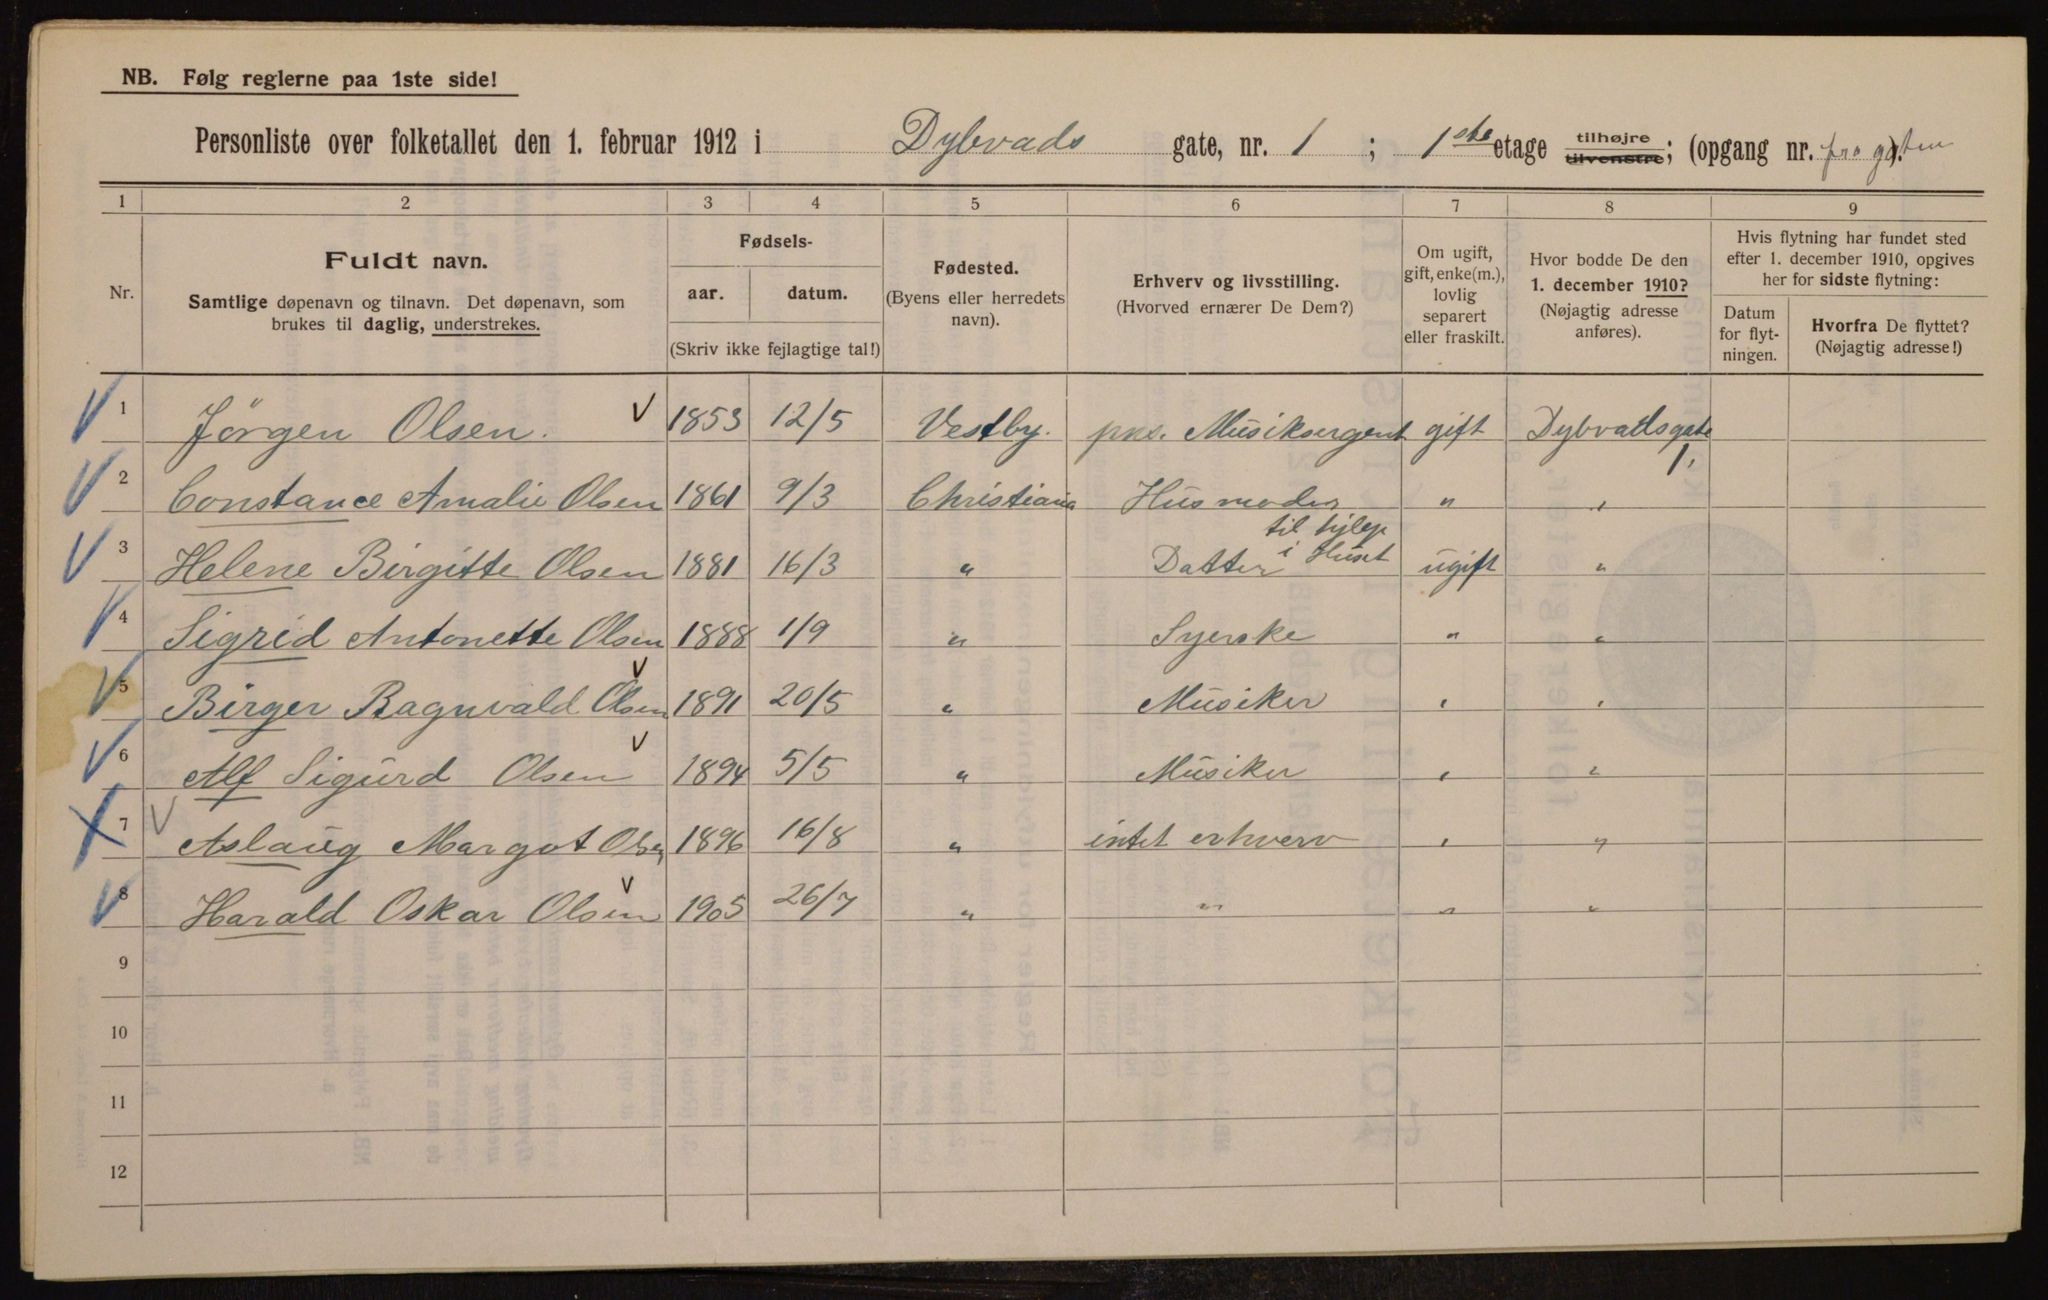 NB. Følg reglerne paa 1ste side!
Personliste over folketallet den 1. februar 1912 i Dybvads gate, nr. 1 ; 1ste etage tilhøjre tilvenstre; (opgang nr. fra gaten).
1 2 3 4 5 6 7 8 9
Nr.
Fuldt navn.
Samtlige døpenavn og tilnavn. Det døpenavn, som
brukes til daglig, understrekes.
Fødsels-
aar. datum.
(Skriv ikke fejlagtige tal!)
Fødested.
(Byens eller herredets
navn).
Erhverv og livsstilling.
(Hvorved ernærer De Dem?)
Om ugift,
gift, enke(m.),
lovlig
separert
eller fraskilt.
Hvor bodde De den
1. december 1910?
(Nøjagtig adresse
anføres).
Hvis flytning har fundet sted
efter 1. december 1910, opgives
her for sidste flytning:
Datum
for flyt-
ningen.
Hvorfra De flyttet?
(Nøjagtig adresse!)
1 Jørgen Olsen. 1853 12/5 Vestby. Musiksergent gift Dybvadsgate 1.
2 Constance Amalie Olsen 1861 9/3 Christiania Husmoder " "
3 Helene Birgitte Olsen 1881 16/3 " Datter til hjelp i Huset ugift "
4 Sigrid Antonette Olsen 1888 1/9 " Syerske " "
5 Birger Ragnvald Olsen 1891 20/5 " Musiker " "
6 Alf Sigurd Olsen 1894 5/5 " Musiker " "
7 Aslaug Margot Olsen 1896 16/8 " intet erhverv " "
8 Harald Oskar Olsen 1905 26/7 " " " "
9
10
11
12